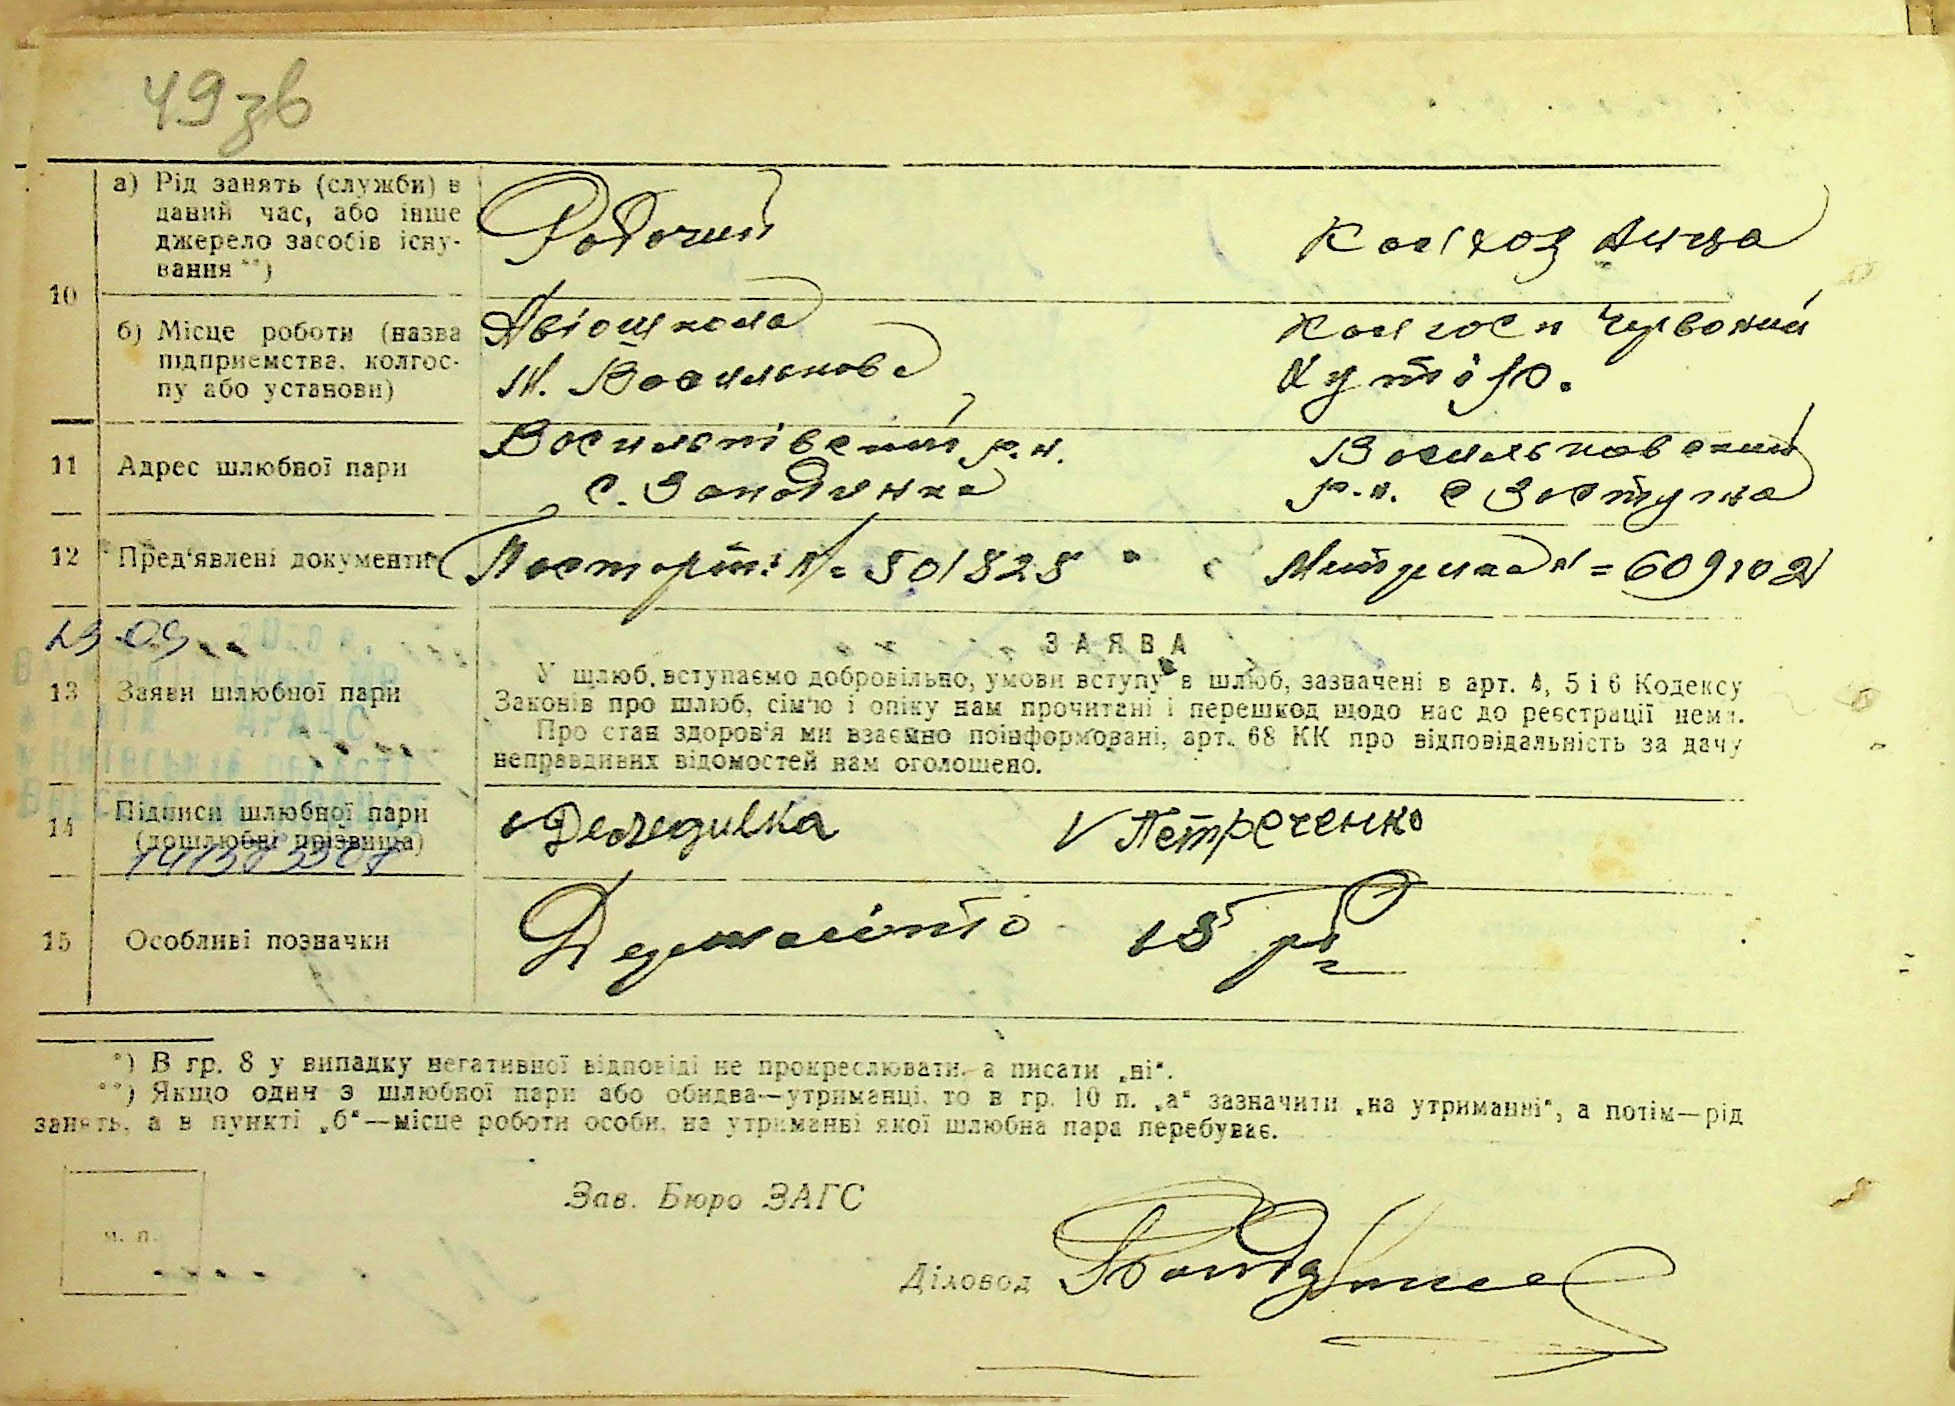 49зв
а) Рід занять (служби) в
даний час, або інше
джерело засобів існу-
вання **)
Робочий
Колхозниця
10
б) Місце роботи (назва
підприємства, колгос-
пу або установи)
Авіошкола
м. Василькова
Колгосп Червоний
Хутір.
11
Адрес шлюбної пари
Васильківський р.н.
с.
Васильковский
р.н. с Застугна
12
Пред'явлені документи
Пасторт: № 501828
Митрика № = 609102
13
Заяви шлюбної пари
ЗАЯВА
У шлюб вступаємо добровільно, умови вступу в шлюб, зазначені в арт. 4, 5 і 6 Кодексу
Законів про шлюб, сім'ю і опіку нам прочитані і перешкод щодо нас до реєстрації нема.
Про стан здоров'я ми взаємно поінформовані, арт. 68 КК про відповідальність за дачу
неправдивих відомостей нам оголошено.
14
Підписи шлюбної пари
(дошлюбні прізвища)
Петреченко
15
Особливі позначки
15
*) В гр. 8 у випадку негативної відповіді не прокреслювати, а писати „ні“.
**) Якщо один з шлюбної пари або обидва—утриманці, то в гр. 10 п. „а“ зазначити „на утриманні“, а потім—рід
занять, а в пункті „б“—місце роботи особи, на утриманні якої шлюбна пара перебуває.
м. п.
Зав. Бюро ЗАГС
Діловод